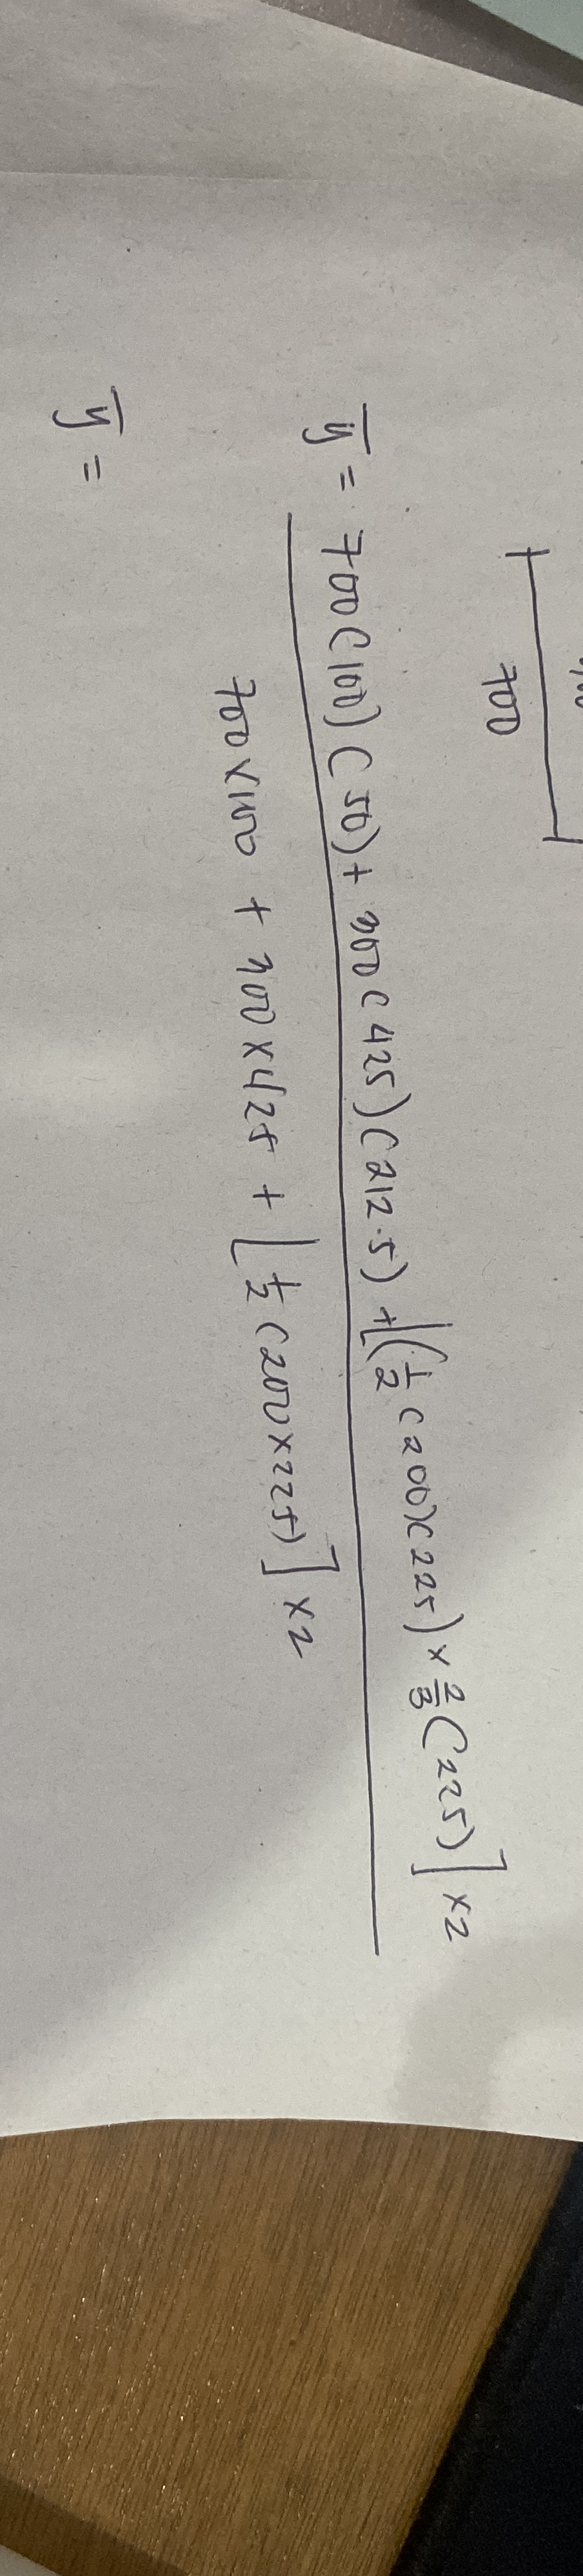 700
ȳ = 700(100)(50) + 300(425)(212.5) + [(1/2(200)(225) × 2/3(225)] ×2
700×100 + 300×425 + [1/2(200×225)] ×2
ȳ =